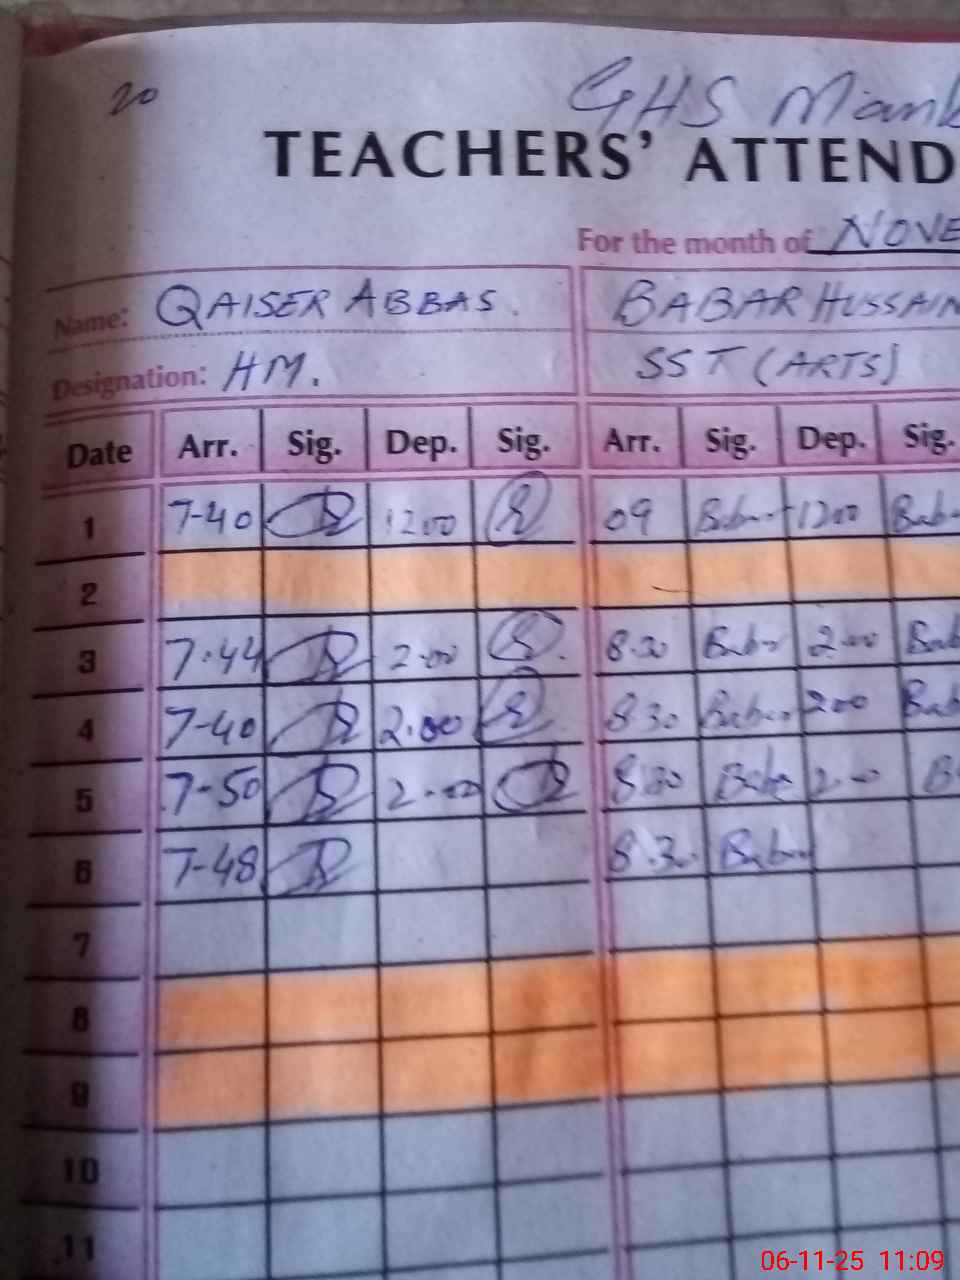 20
GHS Mank
TEACHERS' ATTEND
For the month of NOVE
Name: QAISER ABBAS. BABAR HUSSAIN
Designation: HM. SST (ARTS)
Date Arr. Sig. Dep. Sig. Arr. Sig. Dep. Sig.
1 7-40 1200 09 Babar 1200 Bab
2
3 7.44 2.00 8.30 Babar 2.00 Bab
4 7-40 2.00 8 30 Babar 200 Bab
5 7-50 2.00 8.30 Babar 2.00 B
6 7-48 8.30 Babar
7
8
9
10
11
06-11-25 11:09